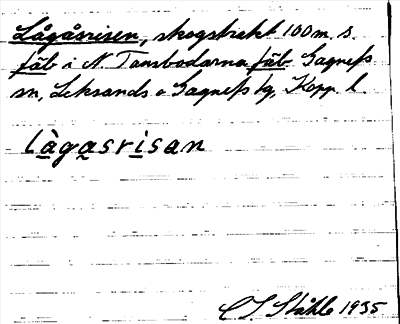 Lågåsrisen, skogstrakt 100 m. s.
fäb i N. Tansbodarna fäb. Gagnefs
sn, Leksands o Gagnefs tg, Kopp. l.
làgasrisan
C S. Ståhle 1935